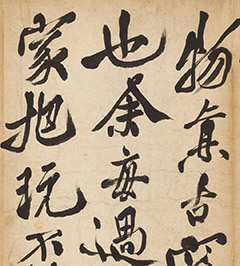 物真古寶
也余每過
家抱玩不